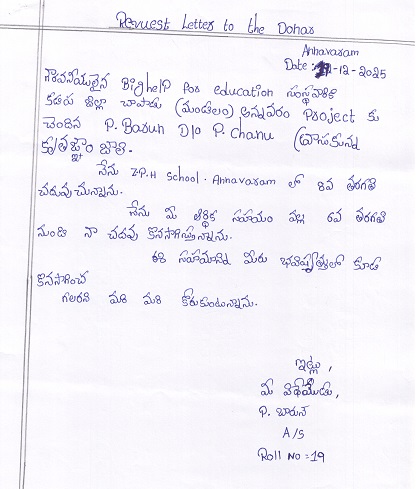 Revuest Letter to the Donar
Annavaram
Date: -12-2025
గౌరవనీయులైన Bighelp for education సంస్థవారికి
కడప జిల్లా చాపాడు (మండలం) అన్నవరం Project కు
చెందిన P. Barun D/o P. Chanu (వ్రాసుకున్న
నేను Z.P.H School. Annavaram లో 8వ తరగతి
చదువు చున్నాను.
నేను మీ ఆర్థిక సహాయం వల్ల 6వ తరగతి
నుండి నా చదువు కొనసాగిస్తున్నాను.
ఈ సహాయాన్ని మీరు భవిష్యత్తులో కూడ
కొనసాగించ
గలరని మరి మరి కోరుకుంటున్నాను.
ఇట్లు,
మీ విధేయుడు,
P. బారున్
A/S
Roll No : 19